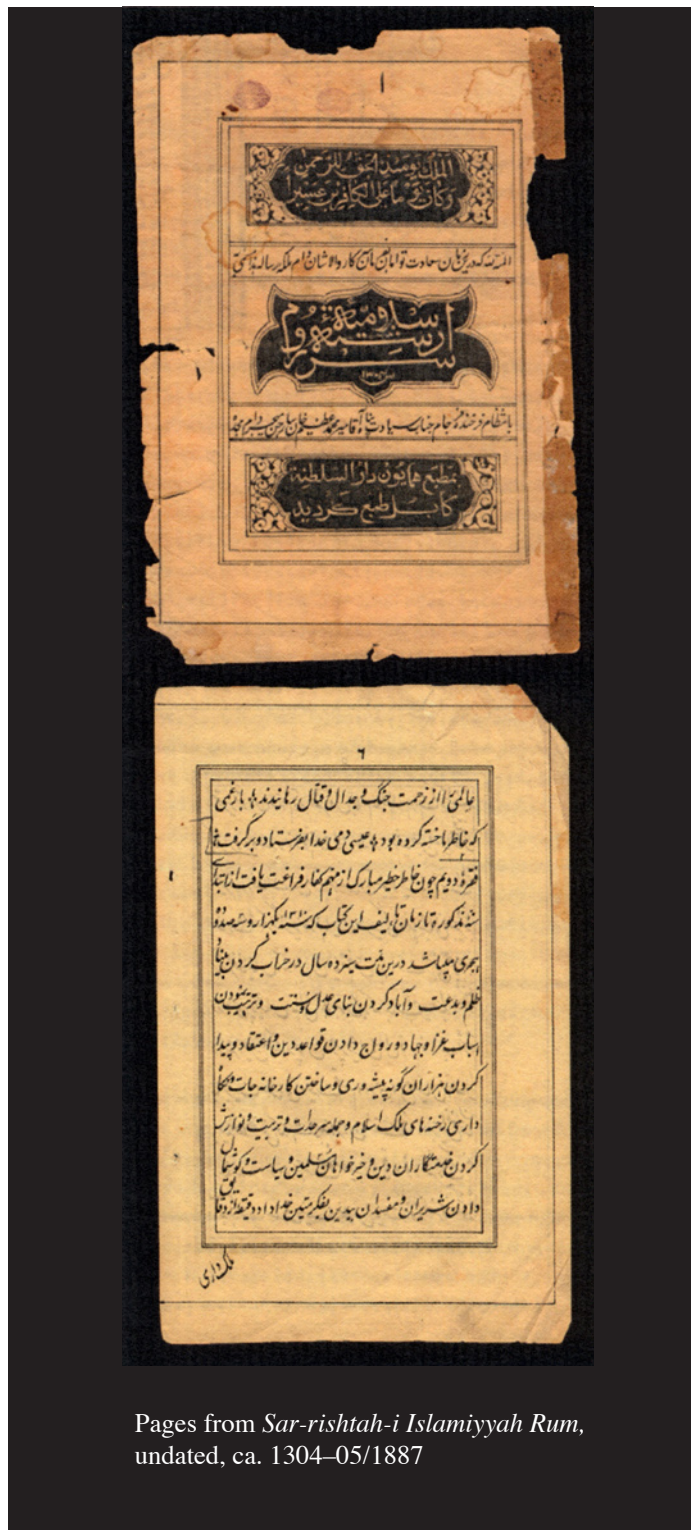 ١
الملک یومئذ الحق للرحمن
وکان یوما علی الکافرین عسیرا
المنة لله که درین زمان سعادت توامان والاشان دام ملکه رساله
سررشته اسلامیه روم
بانتظام فرخنده فرجام جناب سیادت پناه آقا میر محمد عظیم خان دام مجده
بمطبع همایون دار السلطنة
کابل طبع گردید
٦
عالمی را از زحمت جنگ و جدال و قتال رهانیدند باز غمی
که خاطر ما خسته کرده بود عیسی دمی خدا بفرستاد و برگرفت
فقرهٔ دویم چون خاطر خطیر مبارک از مهم کفار فراغت یافت از ابتدای
سنهٔ مذکوره تا زمان تالیف این کتاب که سنه یکهزار و سه صد و
هجری میباشد درین مدت سیزده سال در خراب کردن بنیاد
ظلم و بدعت و آباد کردن بنای عدل و سنت و ترتیب نمودن
اسباب غزا و جهاد و رواج دادن قواعد دین و اعتقاد و پیدا
کردن هزاران گونه پیشه وری و ساختن کارخانه جات و نگاه
داری رخنه های ملک اسلام و جمله سرحدات و تربیت و نوازش
کردن خدمتگاران دین و خیرخواهان مسلمین و سیاست و گوشمال
دادن شریران و مفسدان بیدین بفکر متین خداداد دقیقهٔ از دقایق
ملک داری
Pages from Sar-rishtah-i Islamiyyah Rum,
undated, ca. 1304–05/1887